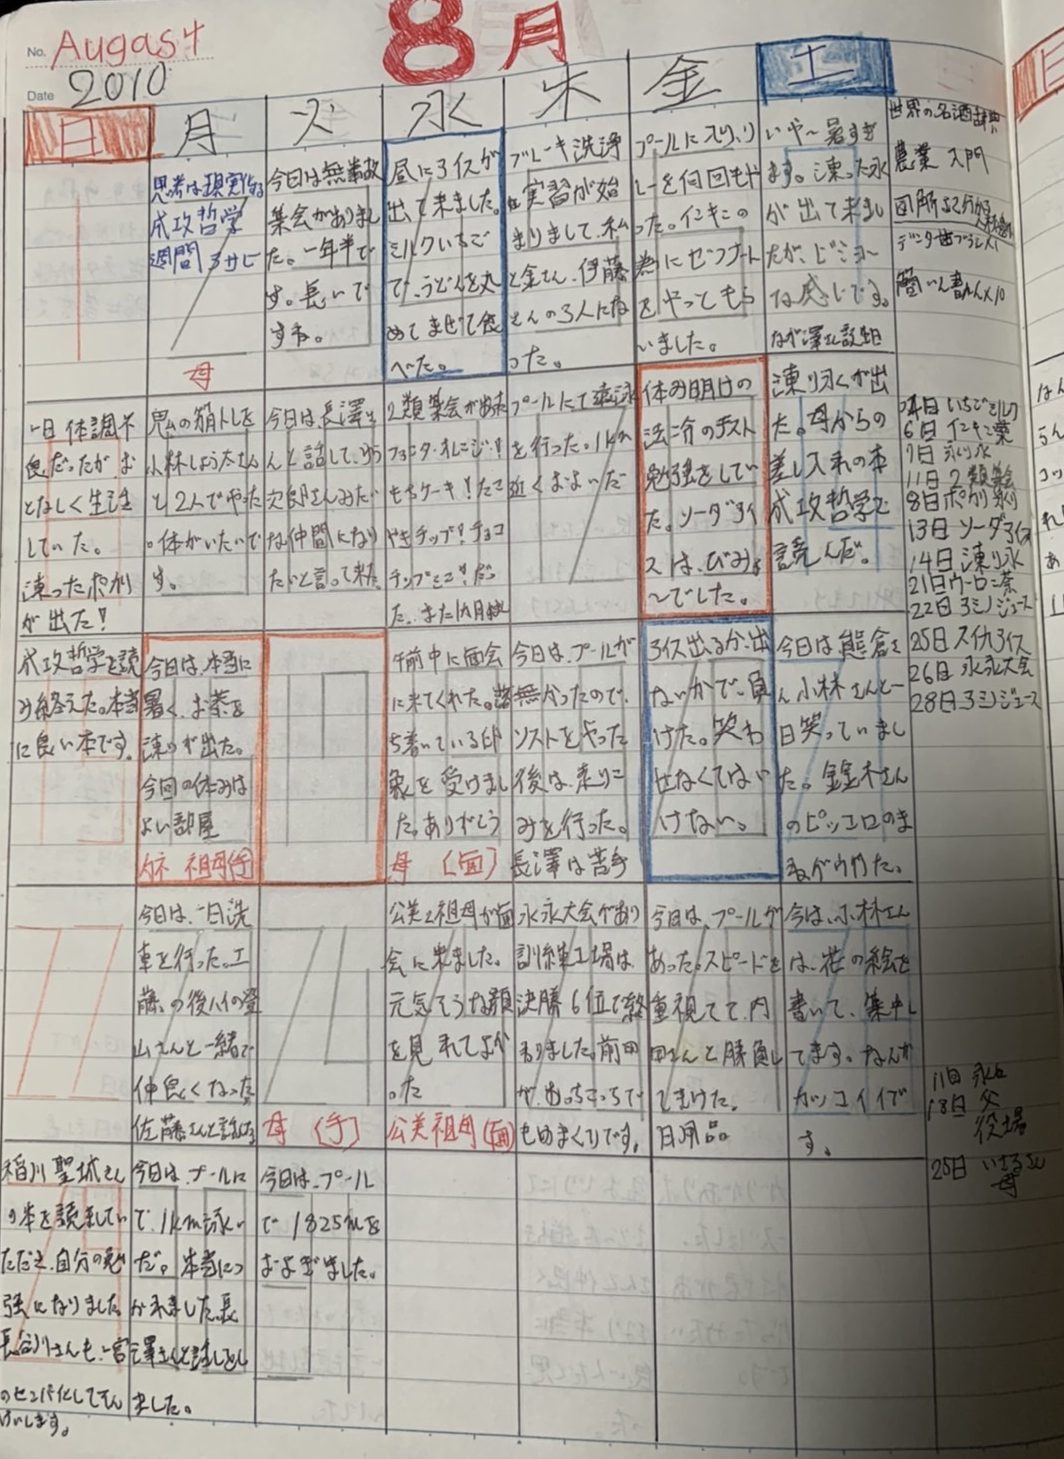 No. Augast
8月
Date 2010
日 月 火 水 木 金 土
1
2
思考は現実化する
成攻哲学
週間
母
今日は無事故
集会がありまし
た。一年半で
す。長いで
すね。
昼にアイスが
出て来ました。
ミルクいちご
で、うどんを丸
めてまぜて食
べた。
ブレーキ洗浄
実習が始
まりまして、私
と金さん、伊藤
さんの3人にな
った。
プールに入り、リ
レーを何回もや
った。インキンの
為にゼフナート
をやってもら
いました。
いや〜暑すぎ
ます。凍った氷
が出て来まし
たが、ビミョ〜
な感じです。
世界の名酒辞典
農業入門
デンター歯ブラシ
一日体調不
良だったが、お
となしく生活
していた。
凍ったポカリ
が出た!!
私の筋トレを
小林しょう太さん
と2人でやった
。体がいたいで
す。
今日は、長澤さ
んと話して、ゆう
次郎さんみたい
な仲間になり
たいと言って来た
2類集会があった
フォンタ・オレンジ!!
もちケーキ!たこ
やきチップ!チョコ
チップミニ!!だっ
た。また1カ月後
プールにて遠泳
を行った。1km
近くおよいだ
休み明けの
法二分のテスト
勉強をしてい
た。ソーダアイ
スは、びみょ
〜でした。
凍り氷が出
た。母からの
差し入れの本
成攻哲学で
読んだ。
4日 いちごミルク
6日 インキン薬
7日 氷り水
11日 2類集会
8日 ポカリ氷り
13日 ソーダアイス
14日 凍り氷
21日 ウーロン茶
22日 アミノジュース
25日 スイカアイス
26日 水泳大会
28日 アミノジュース
成攻哲学を読
み終えた。本当
に良い本です。
今日は、本当に
暑く、お茶を
凍りが出た。
今回の休みは
よい部屋
祖母(手)
午前中に面会
に来てくれた。落
ち着いている印
象を受けまし
た。ありがとう
母 (面)
今日は、プールが
無かったので、
ソフトをやった
後は、走りこ
みを行った。
長澤は苦手
アイス出るか、出
ないかで、負
けた。笑わ
せなくてはい
けない。
今日は熊倉さ
ん、小林さんと一
日笑っていまし
た。金金木さん
のピッコロのま
ねがウケた。
今日は、一日洗
車を行った。工
藤の後ハイの登
山さんと一緒で
仲良くなった
母 (手)
公美と祖母が面
会に来ました。
元気そうな顔
を見れてよか
った
公美祖母(面)
水泳大会があり
訓練工場は、
決勝6位で終
わりました。前田
が、めっちゃっちで
もめまくりです。
今日は、プールが
あった。スピードを
重視して、内
田さんと勝負し
てまけた。
日用品
今は、小林さん
は、花の絵を
書いて、集中し
てます。なんか
カッコイイで
す。
11日 水
18日 父
役場
25日
母
稲川聖城さん
の本を読ましてい
ただき、自分の勉
強になりました。
長谷川さんも、宮
けいします。
今日は、プールに
て、1km泳い
だ。本当につ
かれました。長
澤さんと話しをし
ました。
今日は、プール
で1825mを
およぎました。